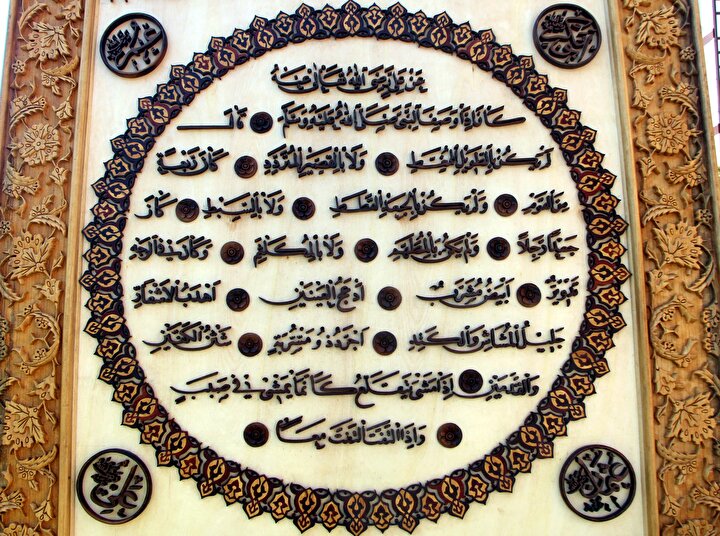 ابو بكر
عمر
عن علي رضي الله تعالى عنه
كان اذا وصف النبي صلى الله عليه وسلم قال
لم يكن بالطويل الممغط ولا بالقصير المتردد كان ربعة
من القوم ولم يكن بالجعد القطط ولا بالسبط كان
جعدا رجلا ولم يكن بالمطهم ولا بالمكلثم وكان في الوجه
تدوير ابيض مشرب ادعج العينين اهدب الاشفار
جليل المشاش والكتد اجرد ذو مسربة شثن الكفين
والقدمين اذا مشى تقلع كانما يمشي في صبب
واذا التفت التفت معا
عثمان
علي